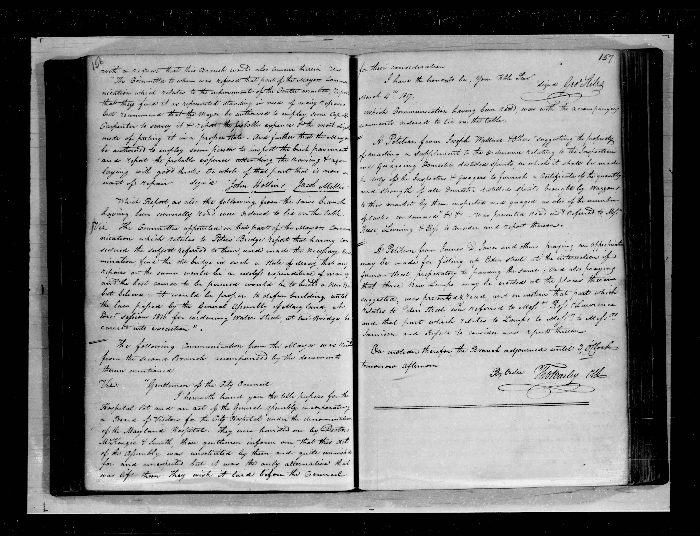 156
with a request that this Branch would also concur therein Viz
"The Committee to whom was referred that part of the Mayors Commu-
nication which relates to the improvement of the Center market, report
that they find it as represented standing in need of many repairs
but recommend that the Mayor be authorised to employ some Capable
Carpenter to survey it & report the probable expense & the most eligible
mode of putting it in a proper state. And further that the Mayor
be authorised to employ some person to inspect the brick pavement
and report the probable expense attending the moving & re-
laying with good bricks the whole of that part that is now in
want of repair. Sign'd John Hollins Jacob Miller
Which Report as also the following from the same branch
having been severally read were ordered to lie on the table.
Viz. The Committee appointed on that part of the Mayors Commu-
nication which relates to Potter's Bridge report that having con-
sidered the subject referred to them and made the necessary exa-
mination find the sd bridge in such a state of decay, that any
repairs on the same would be a useless expenditure of money
and the best course to be pursued would be to build a new one
but believe it would be proper to defer building until
the law passed by the General Assembly of Maryland, at
Decr session 1816 for widening Water Street at sd Bridge be
carried into execution".
The following Communication from the Mayor was read
from the second Branch accompanied by the documents
therein mentioned
Viz. "Gentlemen of the City Council
I herewith hand you the title papers for the
Hospital lot and an act of the General Assembly incorporating
a Board of Visitors for the City Hospital under the denomination
of the Maryland Hospital. They were handed me by Doctors
McKenzie & Smith, these gentlemen inform me that this act
of the Assembly was unsolicited by them and quite unwished
for and unexpected but it was the only alternative that
was left them they wish it laid before the Council
157
for their consideration
I have the honor to be, Your Obt Servt
March 4th 1817. signd Geo: Stiles
Which Communication having been read, was with the accompanying
documents ordered to lie on the table.
A Petition from Joseph Wallace & others suggesting the propriety
of enacting a Supplement to the Ordinance relating to the Inspection
and Guageing Domestic distilled spirits in which it shall be made
the duty of the Inspectors & guagers to furnish a Certificate of the quantity
and strength of all Domestic distilled spirits brought by Waggons
to this market by them inspected and guaged as also of the number
of casks contained &c &c. was presented read and referred to Messrs
and Esqr to consider and report thereon.
A Petition from James and others praying an appropriation
may be made for filling up Eden street at the intersection of
street preparatory to paving the same. And also praying
that three New Lamps may be erected at the places therein
suggested, was presented read and on motion that part which
relates to Eden Street was referred to Messrs and Lawrence
and that part which relates to Lamps to Messrs
Jamison and to consider and report thereon.
On motion therefor the Branch adjourned until 3 OClock
tomorrow afternoon
By Order Clk